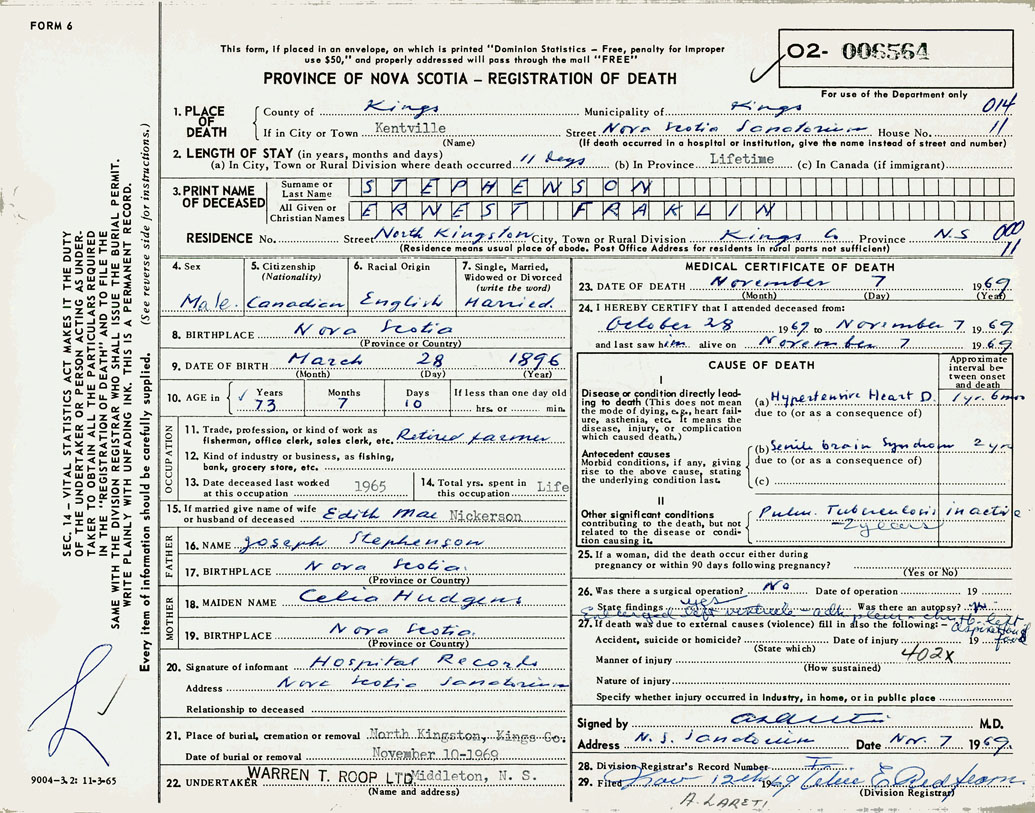 FORM 6
This form, if placed in an envelope, on which is printed "Dominion Statistics – Free, penalty for improper
use $50," and properly addressed will pass through the mail "FREE"
PROVINCE OF NOVA SCOTIA – REGISTRATION OF DEATH
02- 006564
For use of the Department only
SEC. 14 – VITAL STATISTICS ACT MAKES IT THE DUTY
OF THE UNDERTAKER OR PERSON ACTING AS UNDER-
TAKER TO OBTAIN ALL THE PARTICULARS REQUIRED
IN THE "REGISTRATION OF DEATH" AND TO FILE THE
SAME WITH THE DIVISION REGISTRAR WHO SHALL ISSUE THE BURIAL PERMIT.
WRITE PLAINLY WITH UNFADING INK. THIS IS A PERMANENT RECORD.
Every item of information should be carefully supplied. (See reverse side for instructions.)
9004-3.2: 11-3-65
1. PLACE OF DEATH County of Kings Municipality of Kings 014
If in City or Town Kentville Street Nova Scotia Sanatorium House No. 11
(Name) (If death occurred in a hospital or institution, give the name instead of street and number)
2. LENGTH OF STAY (in years, months and days)
(a) In City, Town or Rural Division where death occurred 11 days (b) In Province Lifetime (c) In Canada (if immigrant)
3. PRINT NAME OF DECEASED Surname or Last Name STEPHENSON
All Given or Christian Names ERNEST FRAKLIN
RESIDENCE No. Street North Kingston City, Town or Rural Division Kings Co Province N.S 000
(Residence means usual place of abode. Post Office Address for residents in rural parts not sufficient) 11
4. Sex 5. Citizenship (Nationality) 6. Racial Origin 7. Single, Married, Widowed or Divorced (write the word)
Male. Canadian English Married.
8. BIRTHPLACE Nova Scotia
(Province or Country)
9. DATE OF BIRTH March 28 1896
(Month) (Day) (Year)
10. AGE in Years Months Days If less than one day old
73 7 10 hrs. or min.
OCCUPATION
11. Trade, profession, or kind of work as
fisherman, office clerk, sales clerk, etc. Retired farmer
12. Kind of industry or business, as fishing,
bank, grocery store, etc.
13. Date deceased last worked at this occupation 1965 14. Total yrs. spent in this occupation Life
15. If married give name of wife
or husband of deceased Edith Mae Nickerson
FATHER
16. NAME Joseph Stephenson
17. BIRTHPLACE Nova Scotia
(Province or Country)
MOTHER
18. MAIDEN NAME Celia Hudgens
19. BIRTHPLACE Nova Scotia.
(Province or Country)
20. Signature of informant Hospital Records
Address Nova Scotia Sanatorium
Relationship to deceased
21. Place of burial, cremation or removal North Kingston, Kings Co.
Date of burial or removal November 10-1969
22. UNDERTAKER WARREN T. ROOP LTD Middleton, N. S.
(Name and address)
MEDICAL CERTIFICATE OF DEATH
23. DATE OF DEATH November 7 1969
(Month) (Day) (Year)
24. I HEREBY CERTIFY that I attended deceased from:
October 28 1969 to November 7 1969
and last saw him alive on November 7 1969
CAUSE OF DEATH Approximate interval between onset and death
I
Disease or condition directly lead-
ing to death (This does not mean
the mode of dying, e.g., heart fail-
ure, asthenia, etc. It means the
disease, injury, or complication
which caused death.)
(a) Hypertensive Heart D. 1 yr. 6 mos
due to (or as a consequence of)
Antecedent causes
Morbid conditions, if any, giving
rise to the above cause, stating
the underlying condition last.
(b) Senile brain Syndrom 2 yrs
due to (or as a consequence of)
(c)
II
Other significant conditions
contributing to the death, but not
related to the disease or condi-
tion causing it.
Pulm. Tuberculosis inactive
- 2 years
25. If a woman, did the death occur either during
pregnancy or within 90 days following pregnancy?
(Yes or No)
26. Was there a surgical operation? No Date of operation 19
State findings yes Was there an autopsy?
Enlarged left ventricle
27. If death was due to external causes (violence) fill in also the following:
Accident, suicide or homicide? Date of injury 19
(State which) 402x
Manner of injury
(How sustained)
Nature of injury
Specify whether injury occurred in industry, in home, or in public place
Signed by M.D.
Address N.S. Sanatorium Date Nov. 7 1969.
28. Division Registrar's Record Number
29. Filed Nov 12th 1969
(Division Registrar)
A. LARETI